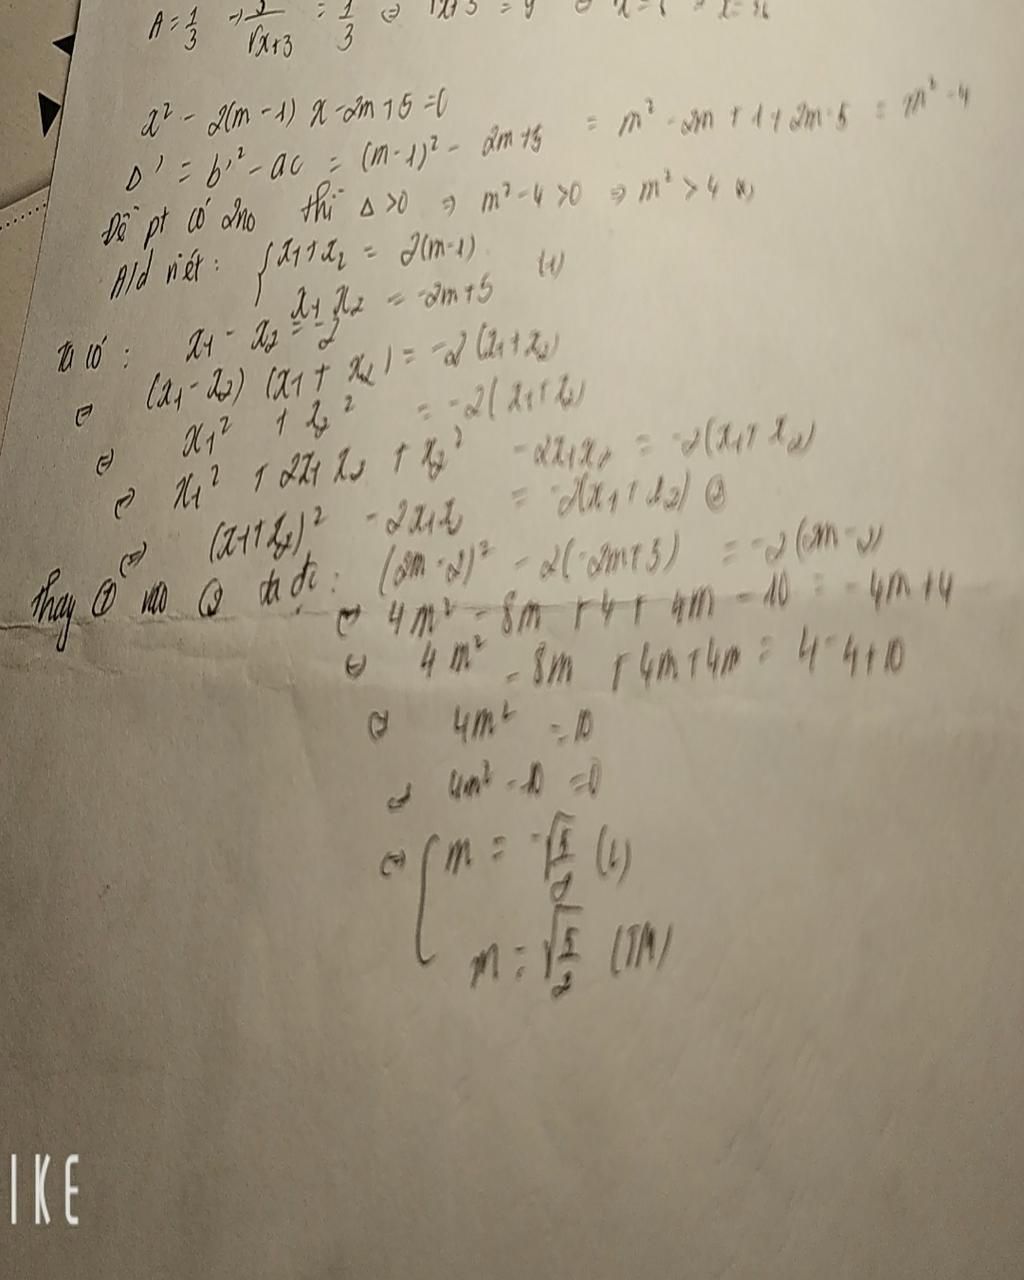 A = 1/3 → 3/√x+3 = 1/3 ⇔ √x+3 = 9 ⇔ x = 6 x = 36
x² - 2(m-1) x - 2m + 5 = 0
Δ' = b'² - ac = (m-1)² - 2m+5 = m² - 2m + 1 + 2m - 5 = m² - 4
Để pt có 2n0 thì Δ > 0 ⇒ m² - 4 > 0 ⇒ m² > 4 (*)
A/d viét: { x₁ + x₂ = 2(m-1)
x₁ x₂ = -2m+5 (1)
ta có: x₁ - x₂ = -2
⇔ (x₁ - x₂) (x₁ + x₂) = -2 (x₁ + x₂)
⇔ x₁² + x₂² = -2 (x₁ + x₂)
⇔ x₁² + 2x₁ x₂ + x₂² - 2x₁x₂ = -2(x₁ + x₂)
⇔ (x₁+x₂)² - 2x₁x₂ = -2(x₁ + x₂) ②
thay ① vào ② ta đc: (2m - 2)² - 2(-2m+5) = -2 (2m - 2)
⇔ 4m² - 8m + 4 + 4m - 10 = -4m + 4
⇔ 4m² - 8m + 4m + 4m = 4 - 4 + 10
⇔ 4m² = 10
⇔ 4m² - 10 = 0
⇔ [ m = -√5/2 (L)
m = √5/2 (TM)
IKE